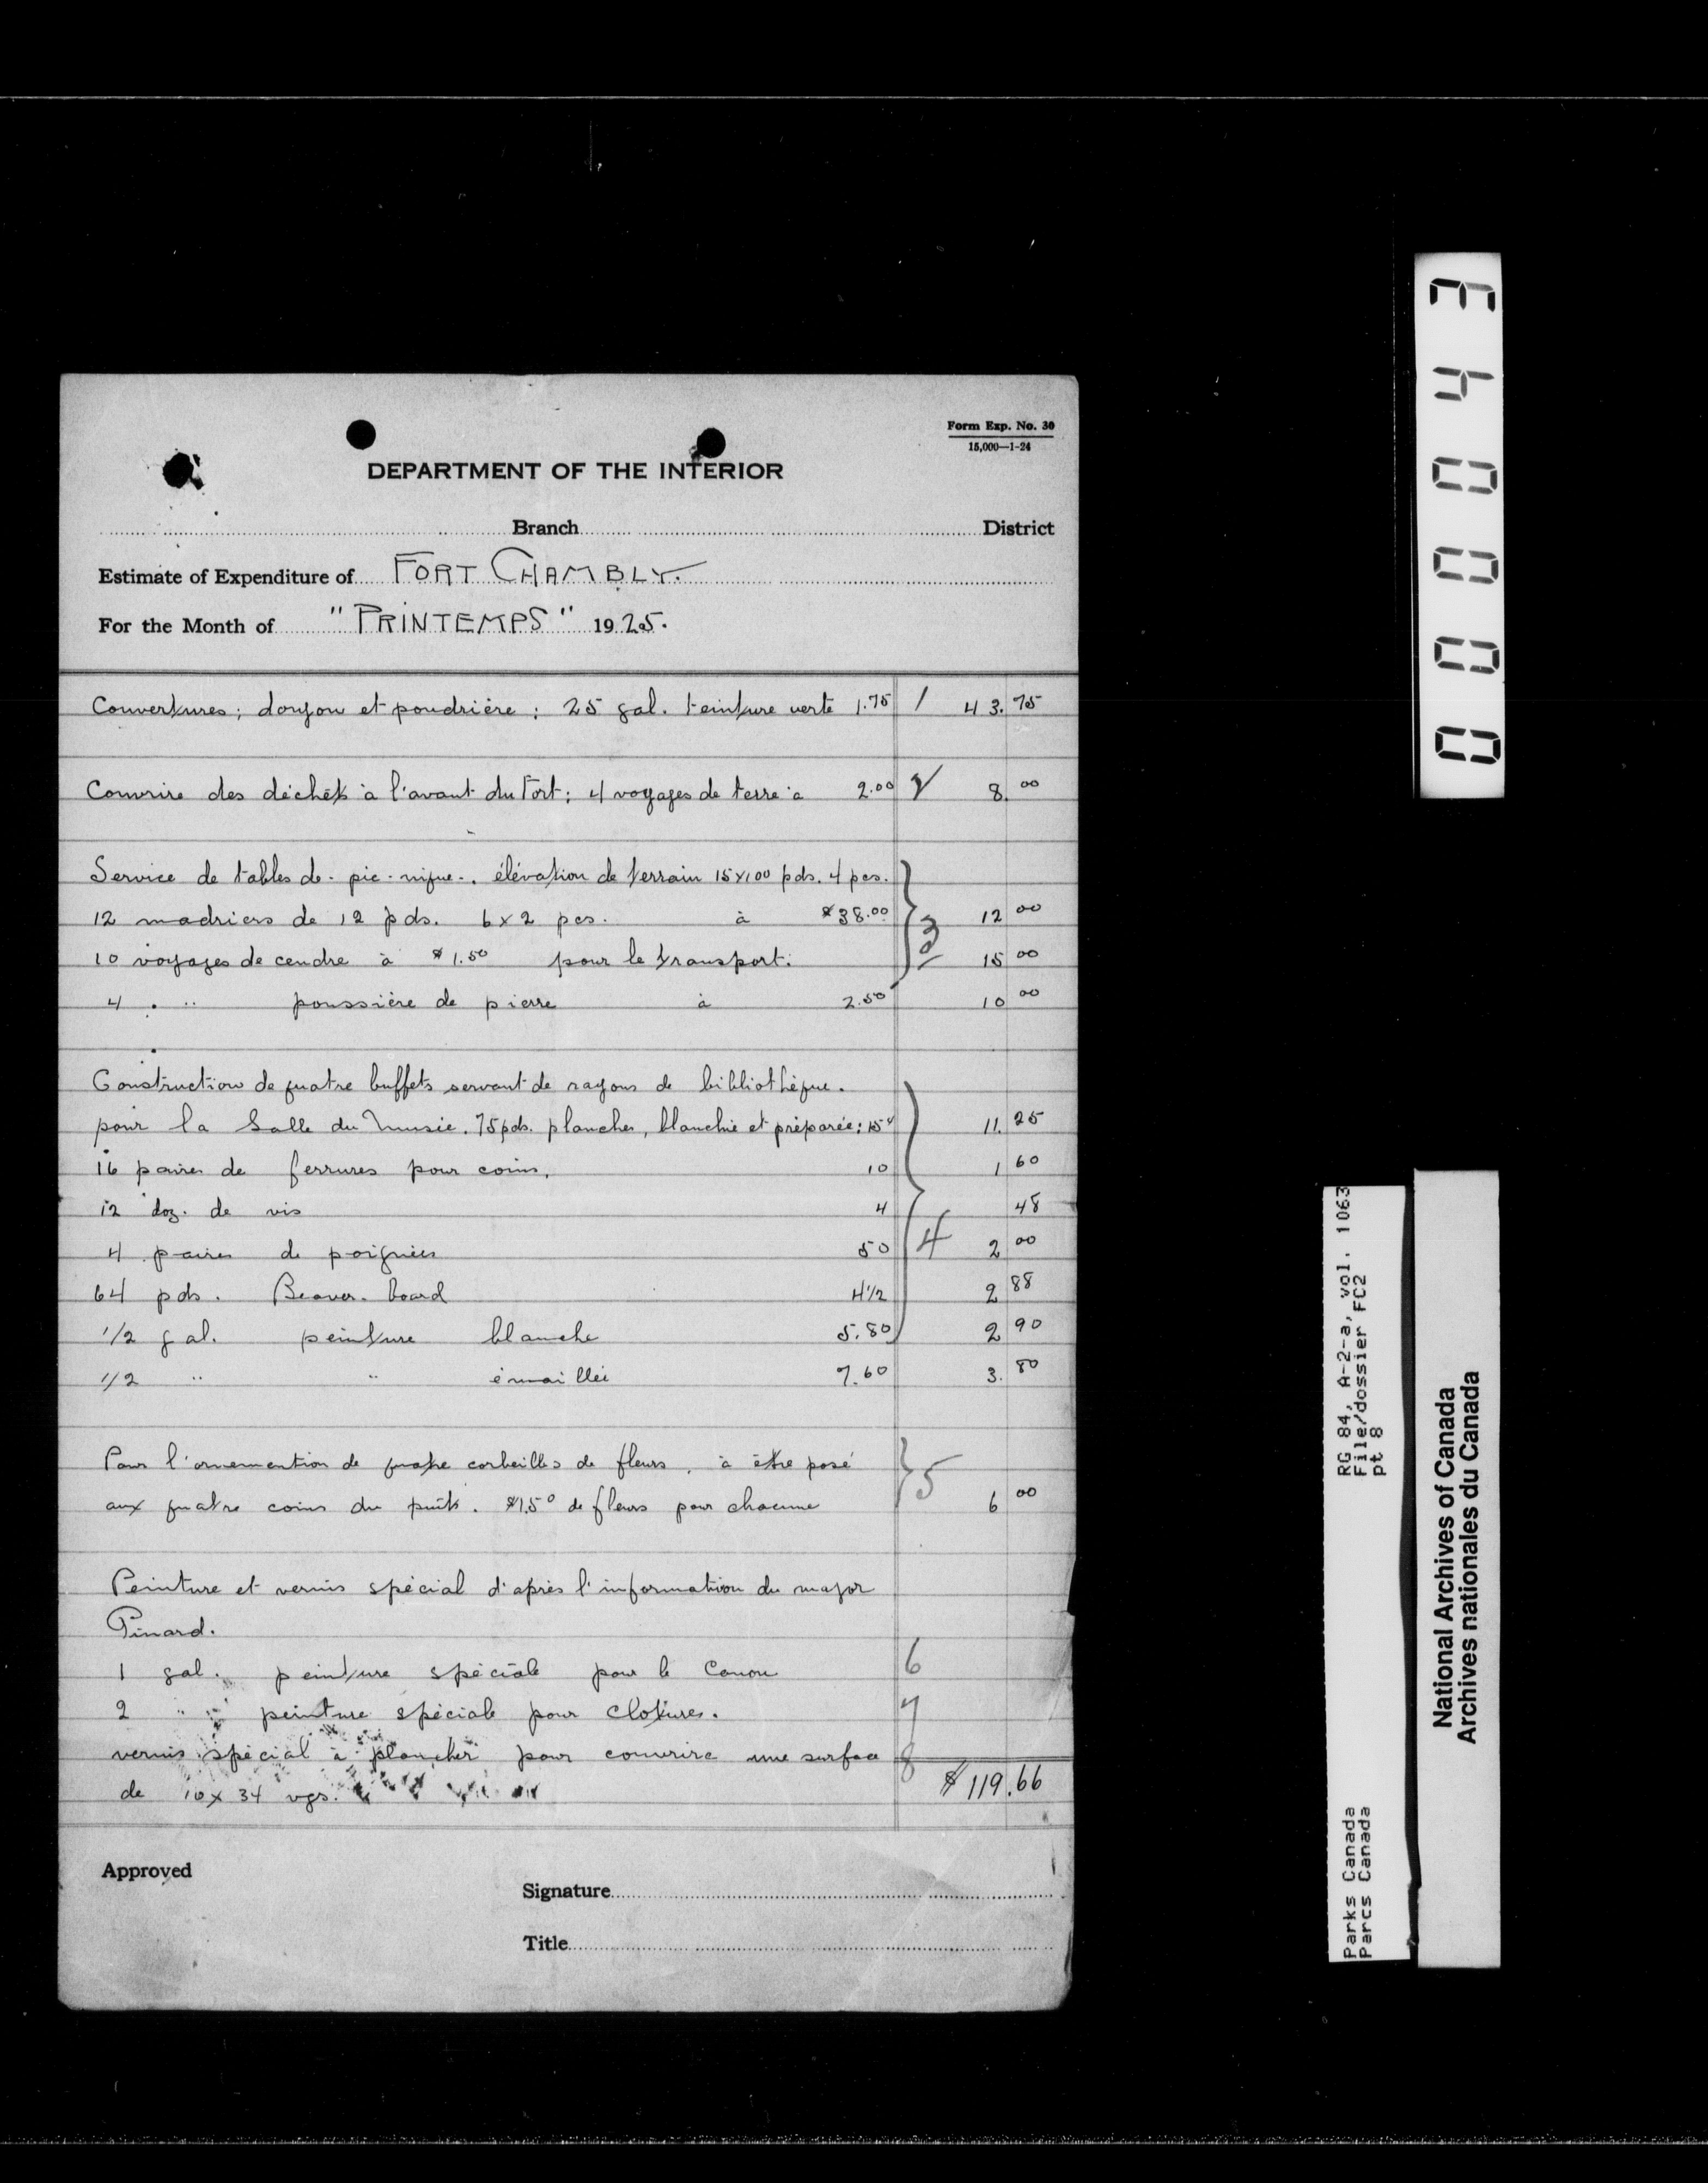 Form Exp. No. 30
15,000—1-24
DEPARTMENT OF THE INTERIOR
Branch District
Estimate of Expenditure of FORT CHAMBLY.
For the Month of "PRINTEMPS" 1925.
Couvertures; donjon et poudrière : 25 gal. teinture verte 1.75 1 43.75
Couvrire des déchets à l'avant du Fort: 4 voyages de terre à 2.00 2 8.00
Service de tables de-pic-nique-. élévation de terrain 15x100 pds. 4 pcs.
12 madriers de 12 pds. 6x2 pcs. à $38.00 12 00
10 voyages de cendre à $1.50 pour le transport. 3 15 00
4 " " poussière de pierre à 2.50 10 00
Construction de quatre buffets servant de rayons de bibliothèque.
pour la Salle du Musie. 75 pds. planches, blanchie et préparée: 15¢ 11.25
16 paires de ferrures pour coins. 10 1 60
12 doz. de vis 4 48
4 paires de poignées 50 4 2 00
64 pds. Beaver-board 4 1/2 2 88
1/2 gal. peinture blanche 5.80 2 90
1/2 " " émaillée 7.60 3.80
Pour l'ornemention de quatre corbeilles de fleurs, à être posé 5
aux quatre coins du puits. $1.50 de fleurs pour chacune 6 00
Peinture et vernis spécial d'après l'information du major
Pinard.
1 gal. peinture spéciale pour le Canon 6
2 " " peinture spéciale pour clotures. 7
vernis spécial à plancher pour couvrire une surface 8
de 10x34 vgs. $119.66
Approved
Signature
Title
0 0 0 0 4 3
RG 84, A-2-a, vol. 1063
File/dossier FC2
pt 8
Parks Canada
Parcs Canada
National Archives of Canada
Archives nationales du Canada